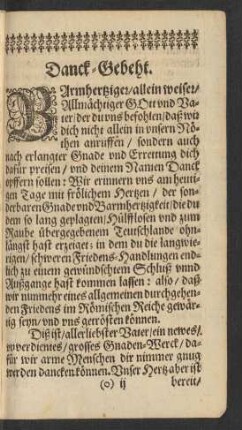 Danck-Gebeht.
BArmhertziger/ allein weiser/
Allmächtiger GOtt und Va-
ter/ der du uns befohlen/ daß wir
dich nicht allein in unsern Nö-
then anruffen/ sondern auch
nach erlangter Gnade und Errettung dich
dafür preisen/ und deinem Namen Danck
opffern sollen: Wir erinnern uns am heuti-
gen Tage mit frölichem Hertzen/ der son-
derbaren Gnade und Barmhertzigkeit/ die du
dem so lang geplagten/ Hülfflosen und zum
Raube übergegebenem Teutschlande ohn-
längst hast erzeiget: in dem du die langwie-
rigen/ schweren Friedens-Handlungen end-
lich zu einem gewündschtem Schluß unnd
Außgange hast kommen lassen: also/ daß
wir nunmehr eines allgemeinen durchgehen-
den Friedens im Römischen Reiche gewär-
tig seyn/ und uns getrösten können.
Diß ist/ allerliebster Vater/ ein newes/
unverdientes/ grosses Gnaden-Werck/ da-
für wir arme Menschen dir nimmer gnug
werden dancken können. Unser Hertz aber ist
(o) ij bereit/